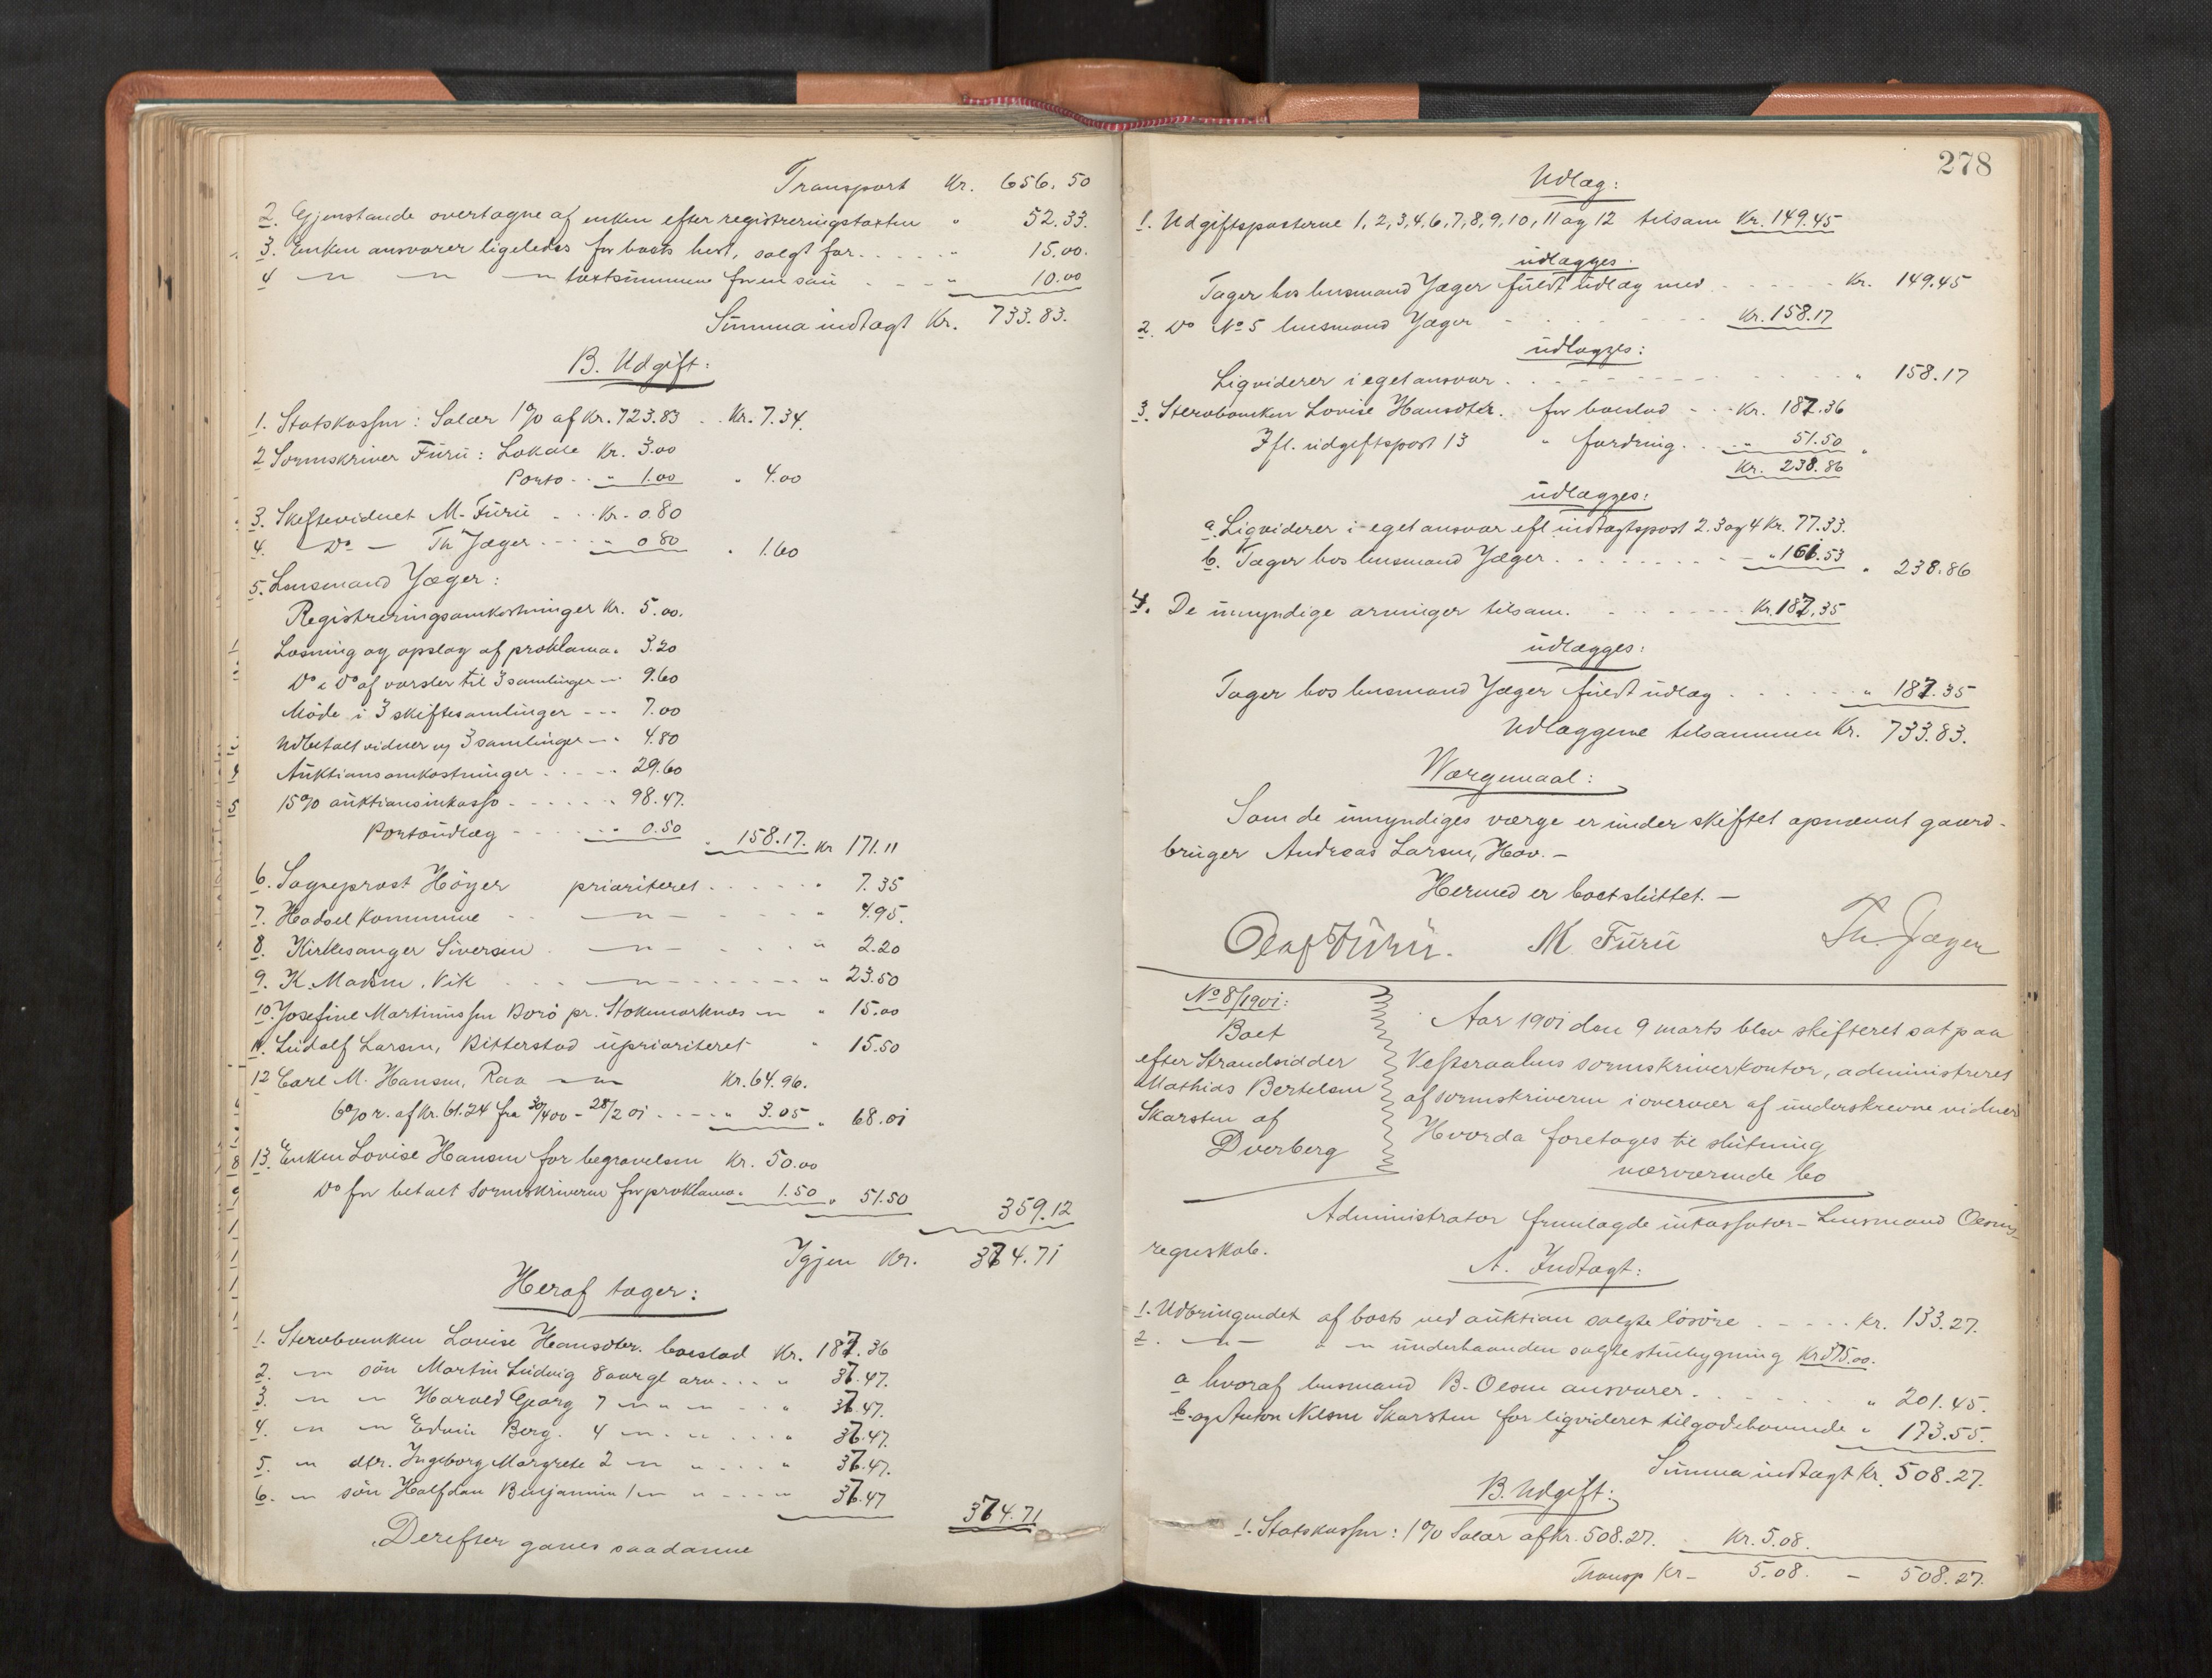 Transport Kr. 656.50
2. Gjenstande overtagne af enken efter registreringstaxten " 52.33.
3. Enken ansvarer ligeledes for boets hest, solgt for . . . . . " 15.00.
4 — " — — " — — " — taxtsummen for en sau . . . — " 10.00
Summa indtægt Kr. 733.83.
B. Udgift:
1. Statskassen: Salær 1% af Kr. 723.83 . . Kr. 7.34.
2 Sorenskriver Furü: Lokale Kr. 3.00
Porto . . " 1.00 " 4.00
3. Skiftevidnet M. Furü . . . Kr. 0.80
4. — Do — Th Jæger . . . . " 0.80 " 1.60
5. Lensmand Jæger:
Registreringsomkostninger Kr. 5.00.
Læsning og opslag af proklama " 3.20
Do & Do af varsler til 3 samlinger — " 9.60
Møde i 3 skiftesamlinger - - - 7.00
Udbetalt vidner og 3 samlinger — " 4.80
Auktionsomkostninger . . . . . 29.60
15% auktionsinkasso . . . . . . " 98.47.
Portoudlæg - - . . . . " 0.50 " 158.17. Kr 171.11
6. Sogneprest Höyer prioriteret . . . . . . " 7.35
7. Hadsel Kommune - - — " — - - - - - " 4.95.
8. Kirkesanger Siversen . — " — . . . . " 2.20
9. K. Madsen, Vik . . . — " — - - - - - - " 23.50
10. Josefine Martinussen Borö pr. Stokmarknes — " " 15.00
11. Ludolf Larsen, Bitterstad uprioriteret " 15.50
12 Carl M. Hansen, Raa — " — Kr. 64.96.
6% r. af Kr. 61.24 fra 30/4 00 - 28/2 01 . . - - " 3.05 " 68.01
13. Enken Lovise Hansen for begravelsen Kr. 50.00
Do for betalt sorenskriveren for proklama " 1.50 " 51.50 359.12
Igjen Kr. 374.71
Heraf tager:
1. Stervboenken Lovise Hansdtr. boeslod Kr. 187.36
2. — " søn Martin Ludvig 8 aar gl arv . . . " 37.47.
3. — " — " Harald Georg 7 — " — " — " . . " 37.47.
4. — " — " Edvin Berg. 4 — " — " . . . " 37.47.
5. — " dtr. Ingeborg Margrete 2 — " " . . . " 37.47.
6. — " søn Halfdan Benjamin 1 — " " . . . — " 37.47 374.71
Derefter gaves saadanne
278
Udlæg:
1. Udgiftsposterne 1, 2, 3, 4, 6, 7, 8, 9, 10, 11 og 12 tilsam Kr. 149.45
udlægges.
Tager hos lensmand Jæger fuldt udlæg med . . . . . . Kr. 149.45
2. Do No 5 lensmand Jæger - . - . - . - . Kr. 158.17
udlægges:
Liqviderer i eget ansvar . . . . . . . . . . . . " 158.17
3. Stervboenken Lovise Hansdtr. for boeslod - . . Kr. 187.36
Ifl. udgiftspost 13 " fordring . . . " 51.50 "
Kr. 238.86
udlægges:
a. Liqviderer i eget ansvar efl indtægtspost 2. 3 og 4 Kr. 77.33.
b. Tager hos lensmand Jæger . . . . . . . . — " 161.53 " 238.86
4. De umyndige arvinger tilsam. . . . . . . . Kr. 187.35
udlægges:
Tager hos lensmand Jæger fuldt udlæg . . . . . . " 187.35
Udlæggene tilsammen Kr. 733.83.
Værgemaal:
Som de umyndiges værge er under skiftet opnævnt gaard-
bruger Andreas Larsen, Hov. —
Hermed er boet sluttet. —
Olaf Furü. M Furü Th. Jæger
No 8/1901:
Boet
efter Strandsidder
Mathias Bertelsen
Skarsten af
Dverberg
Aar 1901 den 9 marts blev skifteret sat paa
Vesteraalens sorenskriverkontor, administreret
af sorenskriveren i overvær af underskrevne vidner
Hvorda foretages til slutning
nærværende bo
Administrator fremlagde inkassator - Lensmand Olsens
regnskab.
A. Indtægt:
1. Udbringendet af boets ved auktion solgte løsøre . - - - . Kr. 133.27.
2. — " — " — " underhaanden solgte stuebygning Kr 375.00.
a hvoraf lensmand B. Olsen ansvarer . . . . . . " 201.45.
b. og Anton Nilsen Skarsten for liqvideret tilgodehavende " 173.55.
Summa indtægt Kr. 508.27.
B. Udgift:
1. Statskassen: 1% Salær af Kr. 508.27. . Kr. 5.08.
Transp Kr - 5.08. - 508.27.